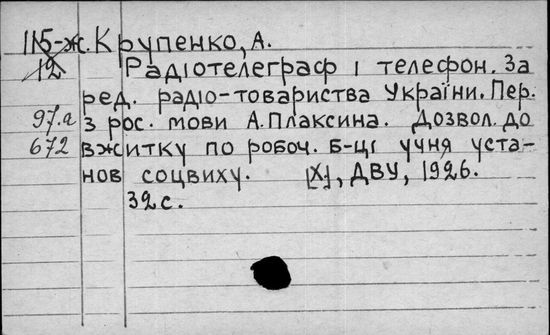 115-ж. Крупенко, А.
12 Радіотелеграф і телефон. За
ред. радіо-товариства України. Пер.
97.а з рос. мови А. Плаксина. Дозвол. до
672 вжитку по робоч. б-ці учня уста-
нов соцвиху. [Х], ДВУ, 1926.
32 с.